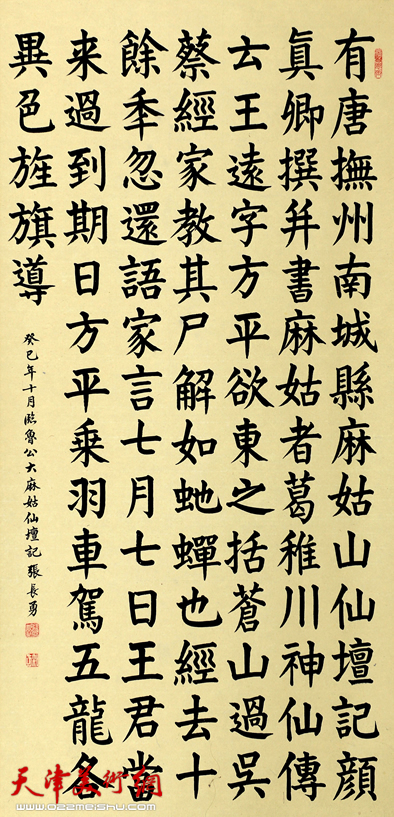 有唐撫州南城縣麻姑山仙壇記顔
真卿撰并書麻姑者葛稚川神仙傳
云王遠字方平欲東之括蒼山過吳
蔡經家教其尸解如虵蟬也經去十
餘年忽還語家言七月七日王君當
来過到期日方平乗羽車駕五龍各
異色旌旗導
癸巳年十月臨魯公大麻姑仙壇記 張長勇
天津美術網
www.022meishu.com